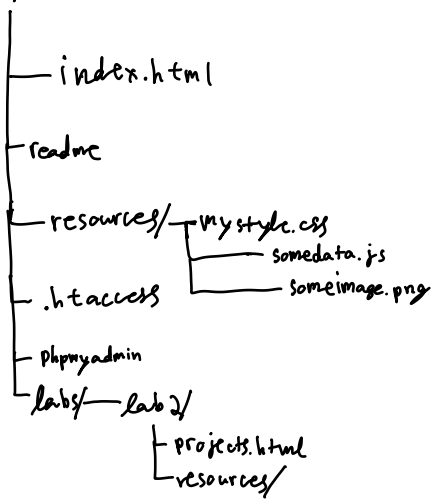 index.html
readme
resources/ mystyle.css
somedata.js
someimage.png
.htaccess
phpmyadmin
labs/ lab2/
projects.html
resources/